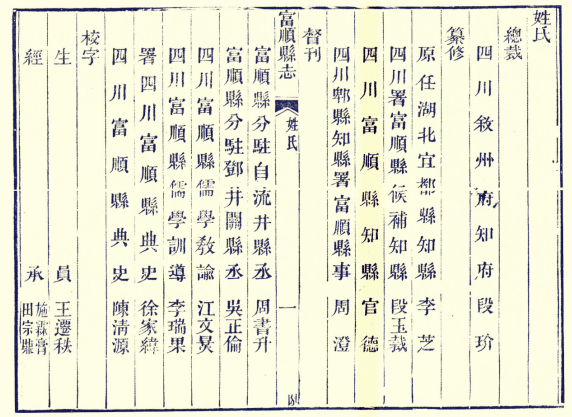 姓氏
總裁
四川敘州府知府段玠
纂修
原任湖北宜都縣知縣李芝
四川署富順縣候補知縣段玉裁
四川富順縣知縣官德
四川郫縣知縣署富順縣事周澄
督刊
富順縣志 姓氏 一
富順縣分駐自流井縣丞周書升
富順縣分駐鄧井關縣丞吳正倫
四川富順縣儒學教諭江文炅
四川富順縣儒學訓導李瑞果
署四川富順縣典史徐家緯
四川富順縣典史陳清源
校字
生員王遷秩
經承施霖膏
田宗